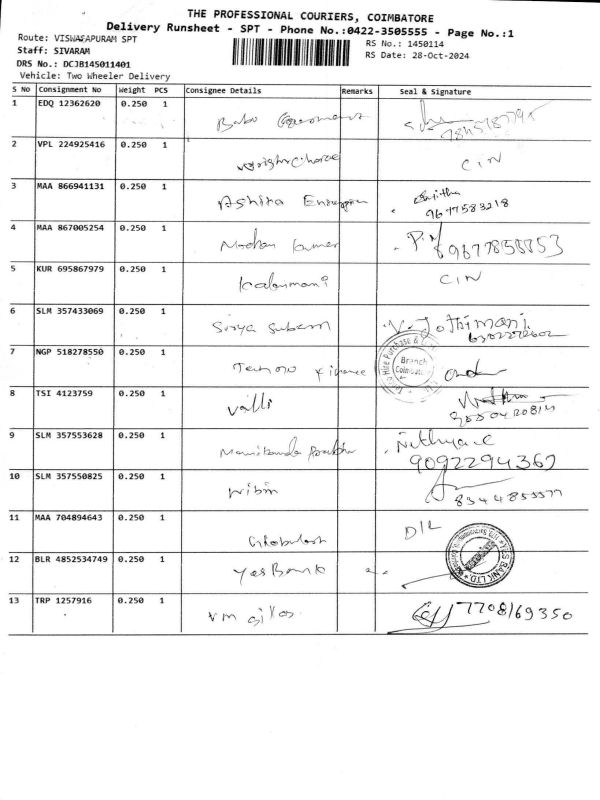 THE PROFESSIONAL COURIERS, COIMBATORE
Delivery Runsheet - SPT - Phone No.:0422-3505555 - Page No.:1
Route: VISWASAPURAM SPT
RS No.: 1450114
Staff: SIVARAM
RS Date: 28-Oct-2024
DRS No.: DCJB145011401
Vehicle: Two Wheeler Delivery
S No Consignment No Weight PCS Consignee Details Remarks Seal & Signature
1 EDQ 12362620 0.250 1 Babu
2 VPL 224925416 0.250 1 CIN
3 MAA 866941131 0.250 1 Ashira
9677583218
4 MAA 867005254 0.250 1 Mohan Kumar 9677858853
5 KUR 695867979 0.250 1 Kalaimani CIN
6 SLM 357433069 0.250 1 Surya V. Jothimani
7 NGP 518278550 0.250 1 Finance
Hire Purchase &
Branch
Coimbatore
8 TSI 4123759 0.250 1 Valli
9 SLM 357553628 0.250 1 Nithya
9092294367
10 SLM 357550825 0.250 1 Nibin
11 MAA 704894643 0.250 1 D/L
12 BLR 4852534749 0.250 1 Yes Bank
YES BANK LTD
13 TRP 1257916 0.250 1 VM 7708169350